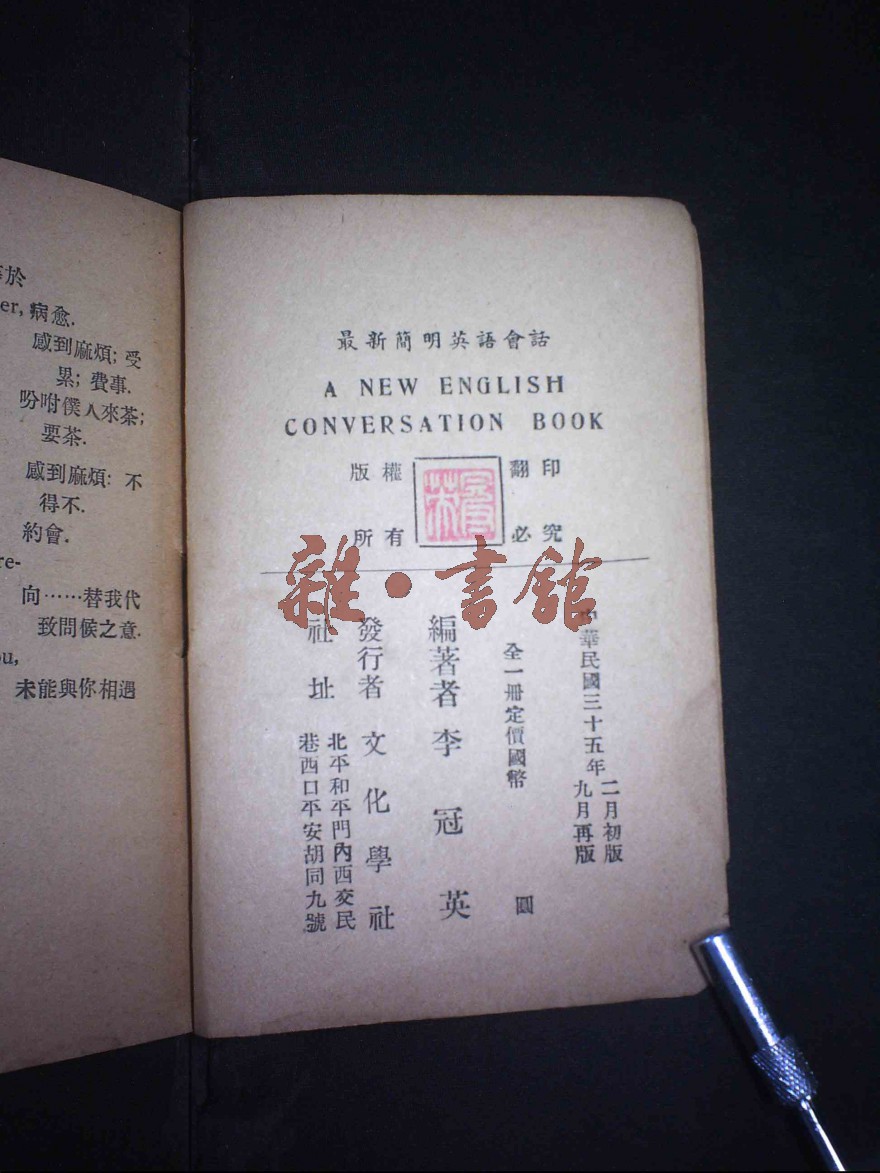 於
er, 病愈.
感到麻煩; 受
累; 費事.
吩咐僕人來茶;
要茶.
感到麻煩: 不
得不.
約會.
re-
向……替我代
致問候之意.
ou,
未能與你相遇
最新簡明英語會話
A NEW ENGLISH
CONVERSATION BOOK
版權 翻印
所有 必究
雜·書館
中華民國三十五年 二月初版
九月再版
全一冊定價國幣 圓
編著者 李冠英
發行者 文化學社
社址 北平和平門內西交民
巷西口平安胡同九號